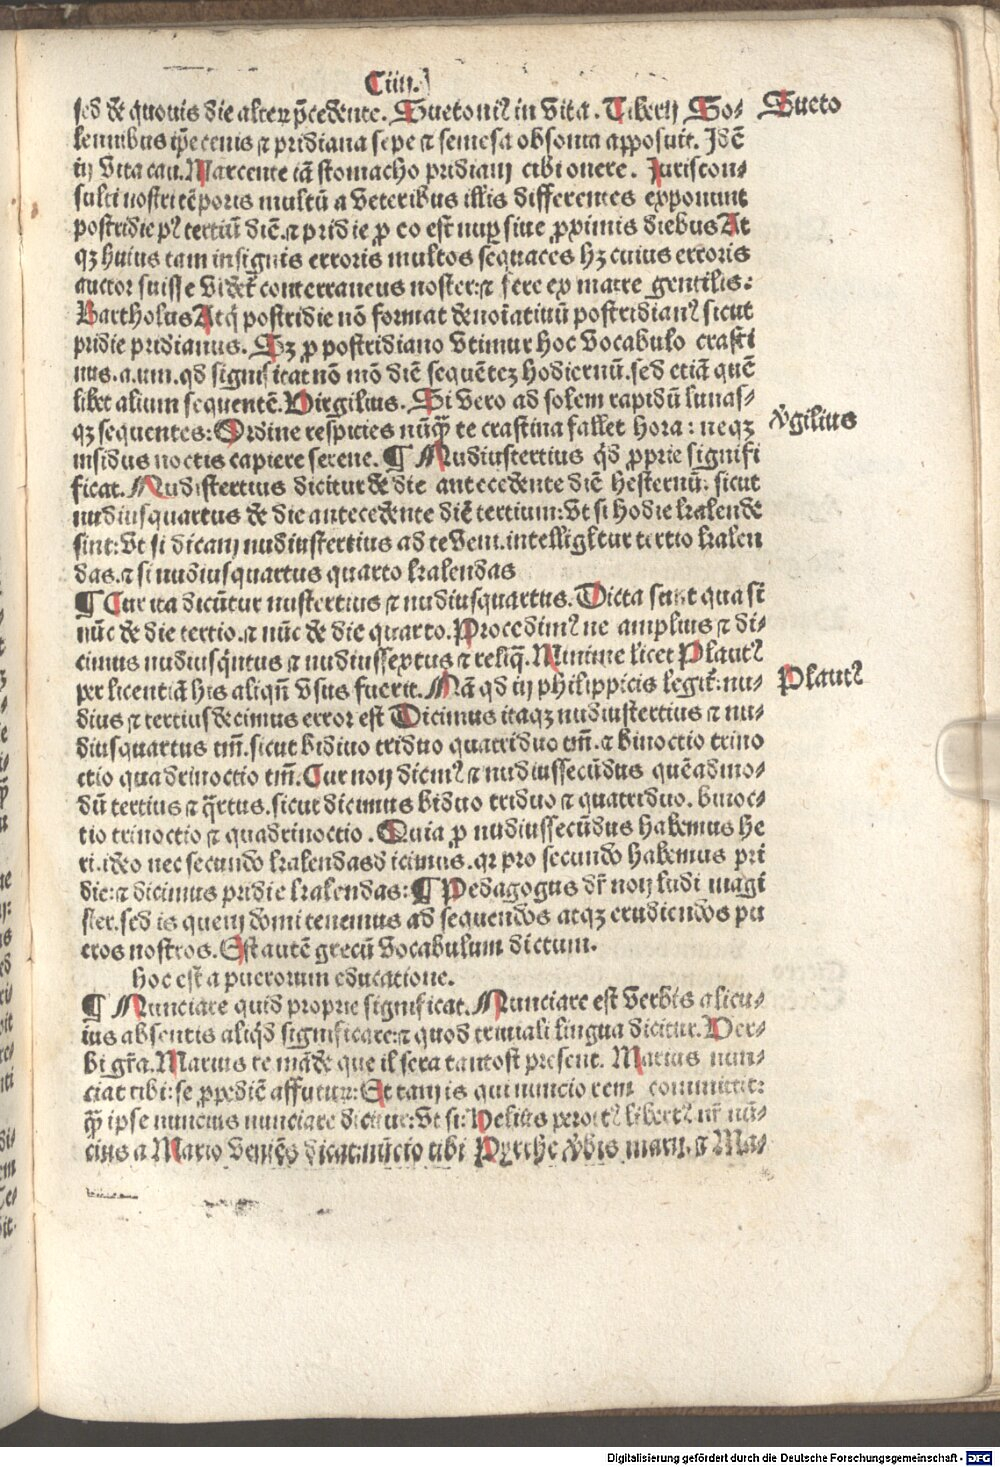 Ciiij.
sed de quouis die alteꝝ p̄cedente. Suetoniꝰ in Vita. Tiberij So-
Sueto
lennibus ip̄e cenis ⁊ pridiana sepe ⁊ semesa obsonia apposuit. Idē
in Vita cau. Marcente iā stomacho pridiani cibi onere. Iuriscon-
sulti nostri tēporis multū a Veteribus illis differentes exponunt
postridie pꝰ tertiū diē. ⁊ pridie p̱ eo est nuꝑ siue p̱ximis diebus At
qꝫ huius tam insignis erroris multos sequaces hꝫ cuius erroris
auctor fuisse Videt̄ conterraneus noster: ⁊ fere ex matre gentilis:
Bartholus Atq̄ postridie nō format denoīatiuū postridianꝰ sicut
pridie pridianus. Sꝫ p̱ postridiano Vtimur hoc Vocabulo crasti
nus. a. um. qd significat nō mō diē sequēteꝫ hodiernū. sed etiā quē
libet alium sequentē. Virgilius. Si Vero ad solem rapidū lunas-
qꝫ sequentes: Ordine respicies nūq̄ te crastina fallet hora: neqꝫ
v̾gilius
insidus noctis capiere serene. ¶ Nudiustertius qd p̱prie signifi
ficat. Nudistertius dicitur de die antecedente diē hesternū. sicut
nudiusquartus de die antecedente diē tertium: Vt si hodie kalende
sint: Vt si dicam nudiustertius ad te Veni. intelligitur tertio kalen
das. ⁊ si nudiusquartus quarto kalendas
¶ Cur ita dicūtur nustertius ⁊ nudiusquartus. Dicta sunt quasi
nūc de die tertio. ⁊ nūc de die quarto. Procedimꝰ ne amplius ⁊ di-
cimus nudiusq̄ntus ⁊ nudiussextus ⁊ reliq̄. Minime licet Plautꝰ
per licentiā his aliqn̄ Vsus fuerit. Nā qd in philippicis legit̄: nu-
Plautꝰ
dius ⁊ tertiusdecimus error est Dicimus itaqꝫ nudiustertius ⁊ nu-
diusquartus tm̄. sicut biduo triduo quatriduo tm̄. ⁊ binoctio trino
ctio quadrinoctio tm̄. Cur non dicimꝰ ⁊ nudiussecūdus quēadmo-
dū tertius ⁊ q̄rtus. sicut dicimus biduo triduo ⁊ quatriduo. binoc-
tio trinoctio ⁊ quadrinoctio. Quia p̱ nudiussecūdus habemus he
ri. ideo nec secundo kalendas dicimus. qr pro secundo habemus pri
die: ⁊ dicimus pridie kalendas: ¶ Pedagogus dr̄ non ludi magi
ster. sed is quem domi tenemus ad sequendos atqꝫ erudiendos pu
eros nostros. Est autē grecū Vocabulum dictum.
hoc est a puerorum educatione.
¶ Nunciare quid proprie significat. Nunciare est Verbis alicu-
ius absentis aliqd significare: ⁊ quod triuiali lingua dicitur. Ver-
bi gr̄a. Marius te māde que il sera tantost present. Marius nun-
ciat tibi: se p̱pediē affuturū: Et tam is qui nuncio rem committit:
q̄ ipse nuncius nunciare dicitur: Vt si: Velius perottꝰ libertꝰ nr̄ nū-
cius a Mario Veniēs dicat: nūcio tibi Pyrrhe v̾bis marij. ⁊ Ma-
Digitalisierung gefördert durch die Deutsche Forschungsgemeinschaft - DFG